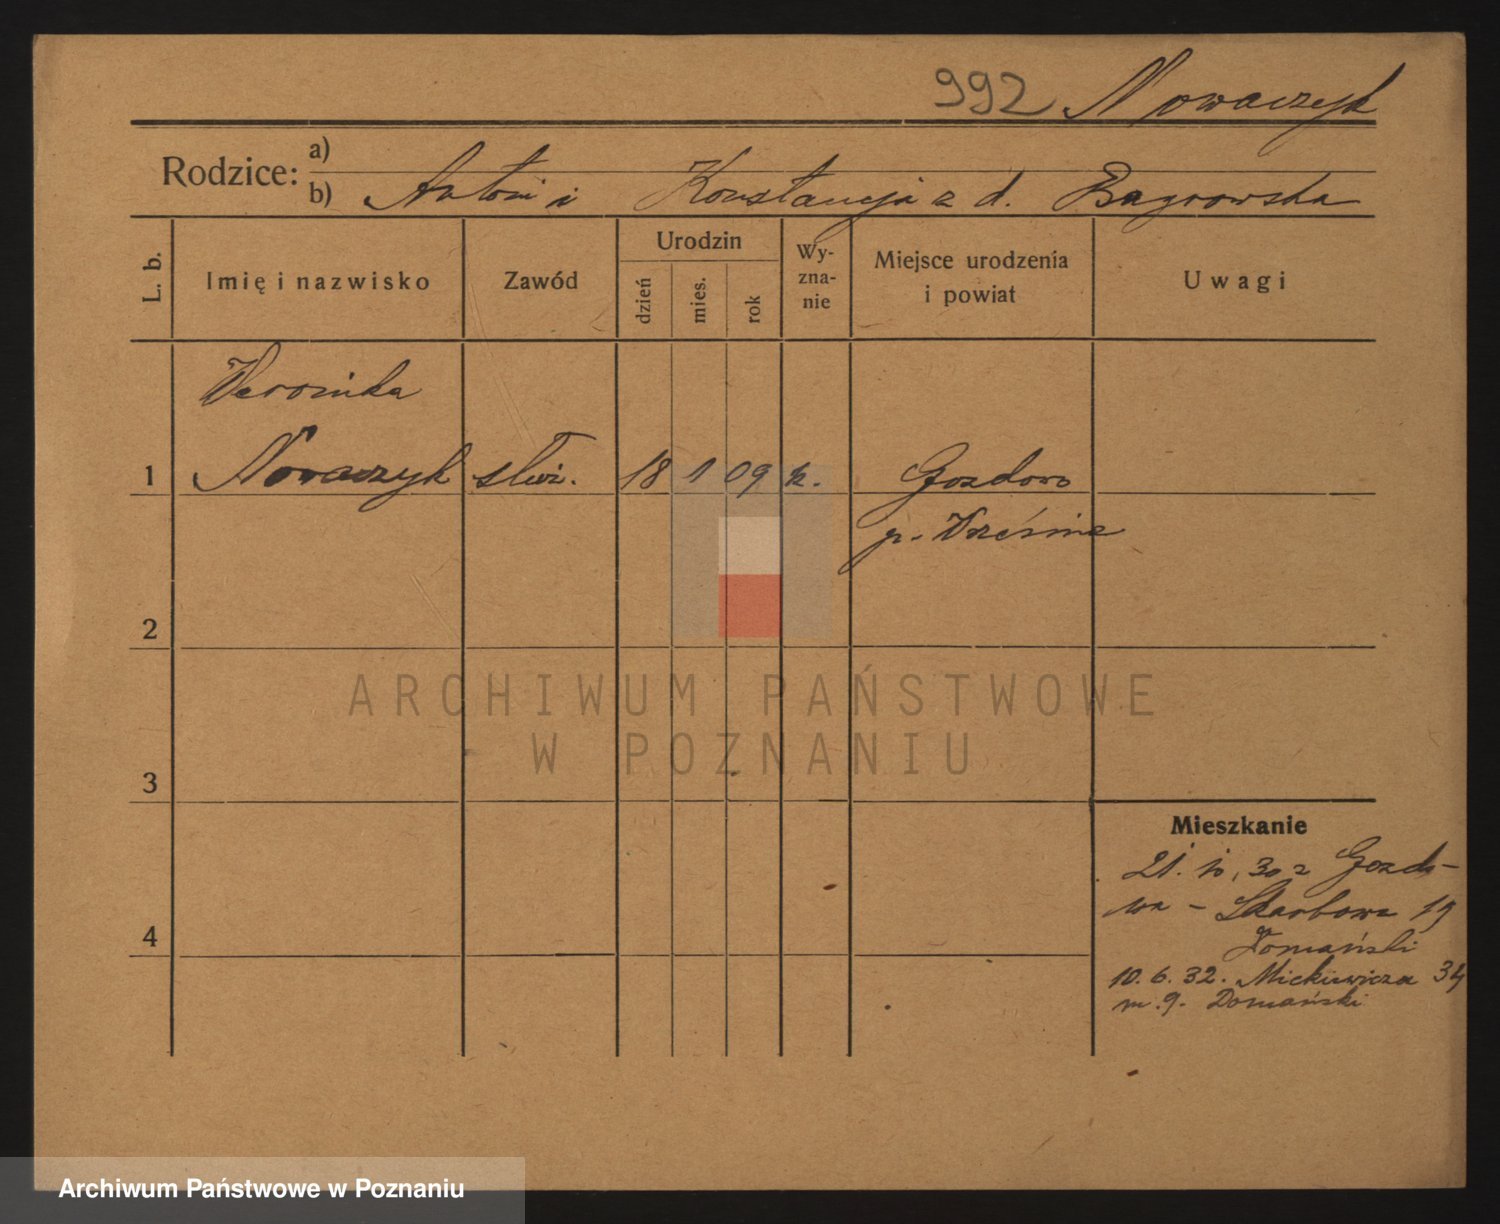 992 Nowaczyk
Rodzice: a)
b) Antoni i Konstancja z d. Bagrowska
L. b.
Imię i nazwisko
Zawód
Urodzin
dzień
mies.
rok
Wy-
zna-
nie
Miejsce urodzenia
i powiat
Uwagi
Weronika
1 Nowaczyk służ. 18 1 09 k. Gozdowo
p. Września
2
3
4
Mieszkanie
21. 10. 30 z Gozdo-
wa - Skarbowa 19
Domański
10. 6. 32. Mickiewicza 34
m. 9. Domański
ARCHIWUM PAŃSTWOWE
W POZNANIU
Archiwum Państwowe w Poznaniu